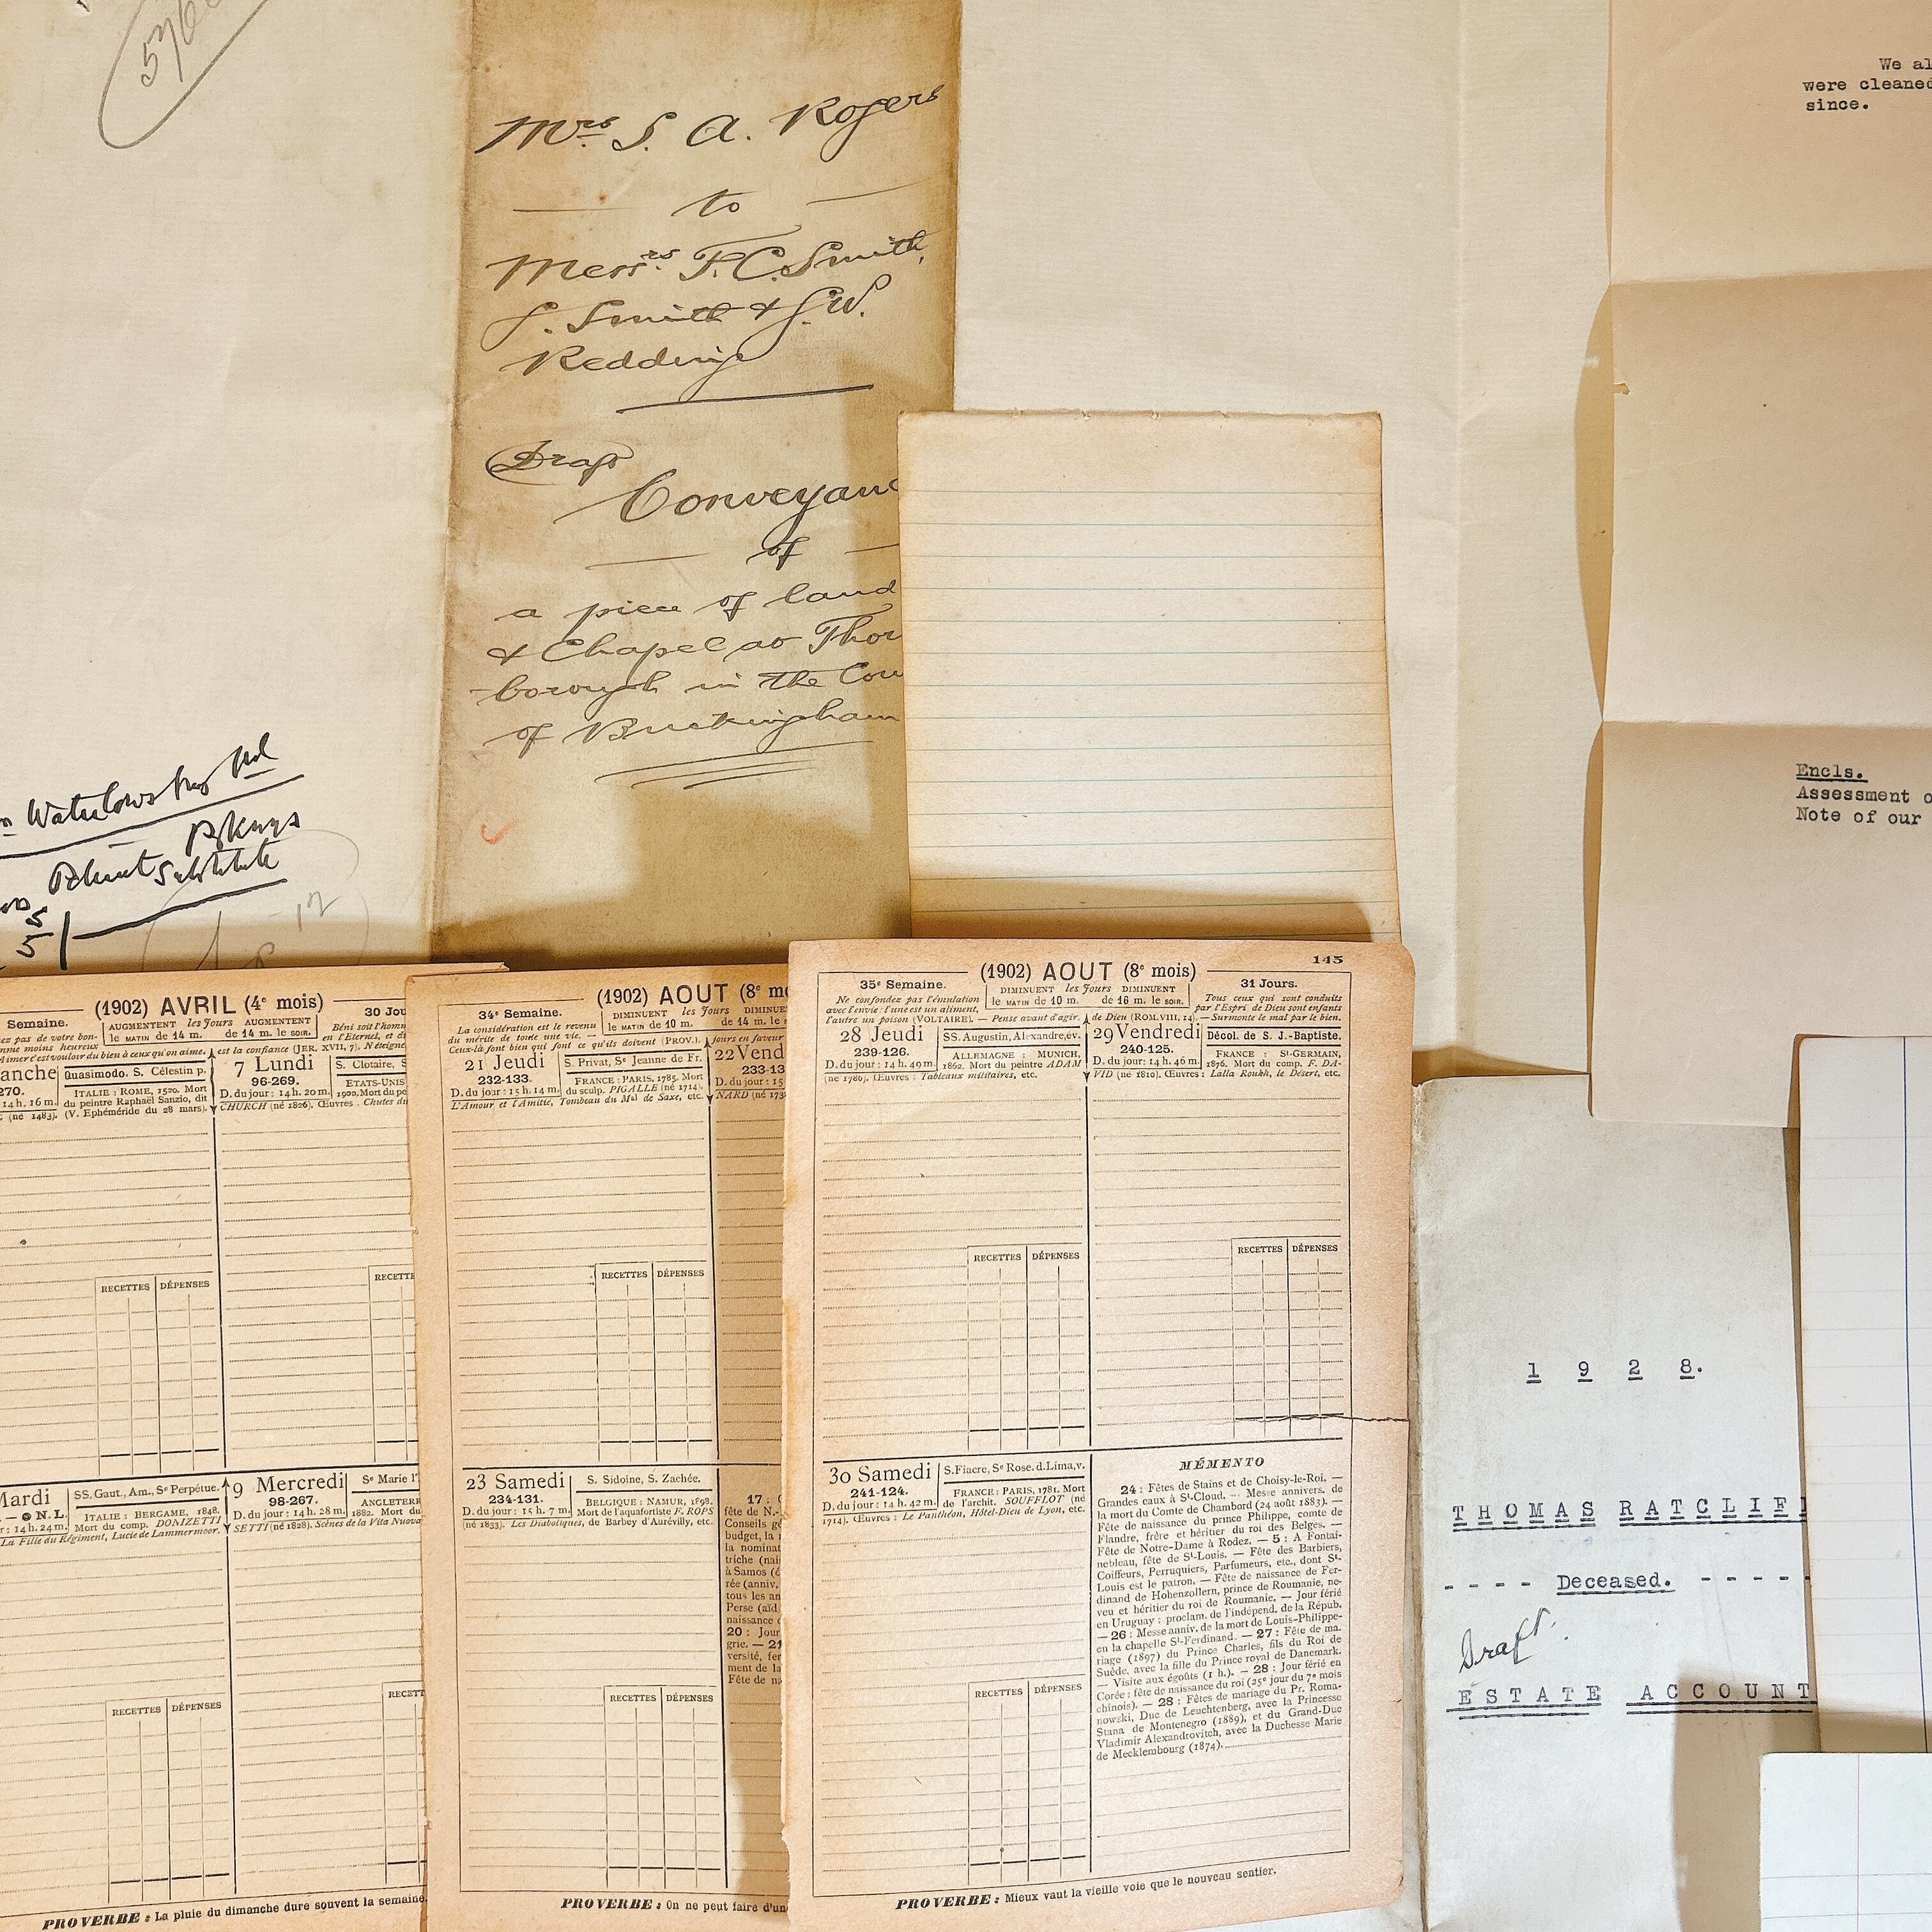 576
Mrs S. A. Rogers
to
Messrs F. C. Smith,
J. Smith & G. W.
Redding
Draft
Conveyanc
of
a piece of land
& Chapel at Thor
-borough in the Cou
of Buckingham
We al
were cleaned
since.
Encls.
Assessment o
Note of our
Waterlow & Sons Ltd
Patent Substitute
(1902) AVRIL (4e mois)
Semaine.
30 Jou
AUGMENTENT les Jours AUGMENTENT
le MATIN de 14 m. de 14 m. le SOIR.
ez pas de votre bon-
mme moins heureux
Aimer c'est vouloir du bien à ceux qu'on aime.
Béni soit l'homm
en l'Eternel, et d
est la confiance (JER. XVII, 7). N'éteigne
anche
270.
14 h. 16 m.
Quasimodo. S. Célestin p.
ITALIE : ROME, 1520. Mort
du peintre Raphaël Sanzio, dit
(né 1483). (V. Ephéméride du 28 mars).
7 Lundi
96-269.
D. du jour : 14 h. 20 m.
S. Clotaire, S
ETATS-UNIS
1900. Mort du pe
CHURCH (né 1826). Œuvres . Chutes du
RECETTES DÉPENSES
RECETTE
Mardi
— N. L.
r : 14 h. 24 m.
SS. Gaut., Am., Se Perpétue.
ITALIE : BERGAME, 1848.
Mort du comp. DONIZETTI
La Fille du Régiment, Lucie de Lammermoor.
9 Mercredi
98-267.
D. du jour : 14 h. 28 m.
Se Marie l'
ANGLETERR
1882. Mort du
SETTI (né 1828). Scènes de la Vita Nuova
RECETTES DÉPENSES
RECETT
PROVERBE : La pluie du dimanche dure souvent la semaine.
(1902) AOUT (8e mo
34e Semaine.
DIMINUENT les Jours DIMINUEN
le MATIN de 10 m. de 14 m. le s
La considération est le revenu
du mérite de toute une vie. —
Ceux-là font bien qui font ce qu'ils doivent (PROV.).
jours en faveur
21 Jeudi
232-133.
D. du jour : 15 h. 14 m.
S. Privat, Se Jeanne de Fr.
FRANCE : PARIS, 1785. Mort
du sculp. PIGALLE (né 1714).
L'Amour et l'Amitié, Tombeau du Mal de Saxe, etc.
22 Vend
233-13
D. du jour : 15
NARD (né 173
RECETTES DÉPENSES
23 Samedi
234-131.
D. du jour : 15 h. 7 m.
S. Sidoine, S. Zachée.
BELGIQUE : NAMUR, 1898.
Mort de l'aquafortiste F. ROPS
(né 1833). Les Diaboliques, de Barbey d'Aurévilly, etc.
17 :
fête de N.-
Conseils gé
budget, la
la nominat
triche (nai
à Samos (é
rée (anniv.
tous les an
Perse (aïd
naissance
20 : Jour
grie. — 21
versité, fer
ment de la
Fête de na
RECETTES DÉPENSES
PROVERBE : On ne peut faire d'un
145
(1902) AOUT (8e mois)
35e Semaine.
31 Jours.
DIMINUENT les Jours DIMINUENT
le MATIN de 10 m. de 16 m. le SOIR.
Ne confondez pas l'émulation
avec l'envie : l'une est un aliment,
l'autre un poison (VOLTAIRE). — Pense avant d'agir.
Tous ceux qui sont conduits
par l'Esprit de Dieu sont enfants
de Dieu (ROM. VIII, 14). — Surmonte le mal par le bien.
28 Jeudi
239-126.
D. du jour : 14 h. 49 m
SS. Augustin, Alexandre, év.
ALLEMAGNE : MUNICH,
1862. Mort du peintre ADAM
(né 1786). Œuvres : Tableaux militaires, etc.
29 Vendredi
240-125.
D. du jour : 14 h. 46 m.
Décol. de S. J.-Baptiste.
FRANCE : St-GERMAIN,
1876. Mort du comp. F. DA-
VID (né 1810). Œuvres : Lalla Roukh, le Désert, etc.
RECETTES DÉPENSES
RECETTES DÉPENSES
30 Samedi
241-124.
D. du jour : 14 h. 42 m.
S. Fiacre, Se Rose. d. Lima, v.
FRANCE : PARIS, 1781. Mort
de l'archit. SOUFFLOT (né
1714). Œuvres : Le Panthéon, Hôtel-Dieu de Lyon, etc.
MÉMENTO
24 : Fêtes de Stains et de Choisy-le-Roi. —
Grandes eaux à St-Cloud. — Messe annivers. de
la mort du Comte de Chambord (24 août 1883). —
Fête de naissance du prince Philippe, comte de
Flandre, frère et héritier du roi des Belges. —
Fête de Notre-Dame à Rodez. — 5 : A Fontai-
nebleau, fête de St-Louis. — Fête des Barbiers,
Coiffeurs, Perruquiers, Parfumeurs, etc., dont St-
Louis est le patron. — Fête de naissance de Fer-
dinand de Hohenzollern, prince de Roumanie, ne-
veu et héritier du roi de Roumanie. — Jour férié
en Uruguay : proclam. de l'indépend. de la Répub.
— 26 : Messe anniv. de la mort de Louis-Philippe-
en la chapelle St-Ferdinand. — 27 : Fête de ma-
riage (1897) du Prince Charles, fils du Roi de
Suède, avec la fille du Prince royal de Danemark.
— Visite aux égoûts (1 h.). — 28 : Jour férié en
Corée : fête de naissance du roi (25e jour du 7e mois
chinois). — 28 : Fêtes de mariage du Pr. Roma-
nowski, Duc de Leuchtenberg, avec la Princesse
Stana de Montenegro (1889), et du Grand-Duc
Vladimir Alexandrovitch, avec la Duchesse Marie
de Mecklembourg (1874).
RECETTES DÉPENSES
PROVERBE : Mieux vaut la vieille voie que le nouveau sentier.
1 9 2 8.
THOMAS RATCLIF
---- Deceased. ----
Draft
ESTATE ACCOUNT